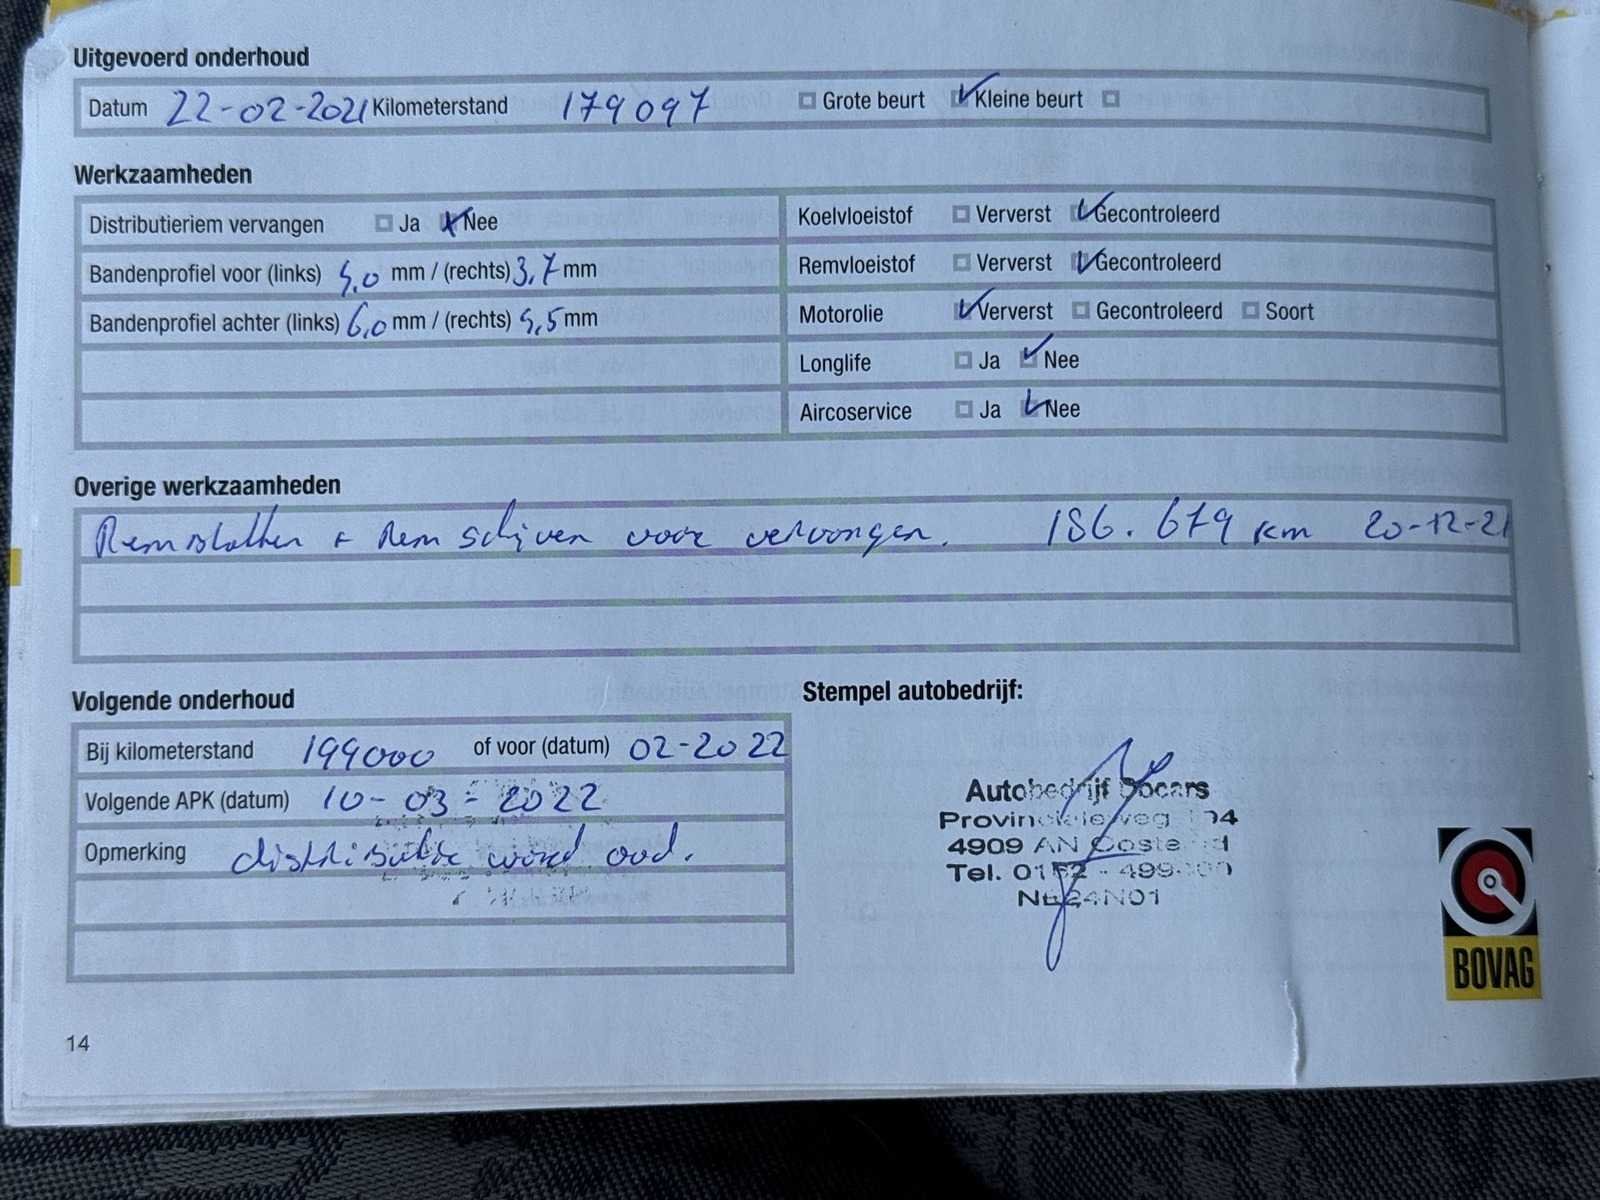 Uitgevoerd onderhoud
Datum 22-02-2021 Kilometerstand 179097 Grote beurt Kleine beurt
Werkzaamheden
Distributieriem vervangen Ja Nee
Bandenprofiel voor (links) 5,0 mm / (rechts) 3,7 mm
Bandenprofiel achter (links) 6,0 mm / (rechts) 5,5 mm
Koelvloeistof Ververst Gecontroleerd
Remvloeistof Ververst Gecontroleerd
Motorolie Ververst Gecontroleerd Soort
Longlife Ja Nee
Aircoservice Ja Nee
Overige werkzaamheden
Remblokken + Rem schijven voor vervangen. 186.679 km 20-12-21
Volgende onderhoud
Bij kilometerstand 199000 of voor (datum) 02-2022
Volgende APK (datum) 10-03-2022
Opmerking distributie word oud.
Stempel autobedrijf:
Autobedrijf Docars
4909 AN
Tel.
BOVAG
14